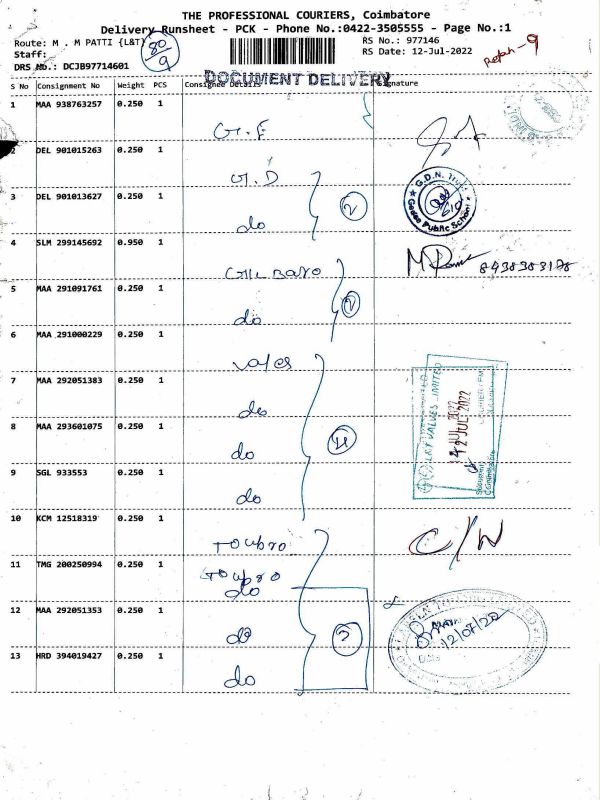 THE PROFESSIONAL COURIERS, Coimbatore
Delivery Runsheet - PCK - Phone No.:0422-3505555 - Page No.:1
Route: M . M PATTI {L&T} 80/9 RS No.: 977146
Staff: RS Date: 12-Jul-2022
DRS No.: DCJB97714601
DOCUMENT DELIVERY
S No Consignment No Weight PCS Consignee Details Signature
1 MAA 938763257 0.250 1
2 DEL 901015263 0.250 1
G.D
3 DEL 901013627 0.250 1
do 2
G.D.N. Trust
Gedee Public School
4 SLM 299145692 0.950 1
5 MAA 291091761 0.250 1
do 2
6 MAA 291000229 0.250 1
7 MAA 292051383 0.250 1
do
8 MAA 293601075 0.250 1
do 4
9 SGL 933553 0.250 1
do
L&T VALVES LIMITED
12 JUL 2022
10 KCM 12518319 0.250 1
Toubro C/W
11 TMG 200250994 0.250 1
Toubro
do
12 MAA 292051353 0.250 1
do
12/07/22
13 HRD 394019427 0.250 1
do